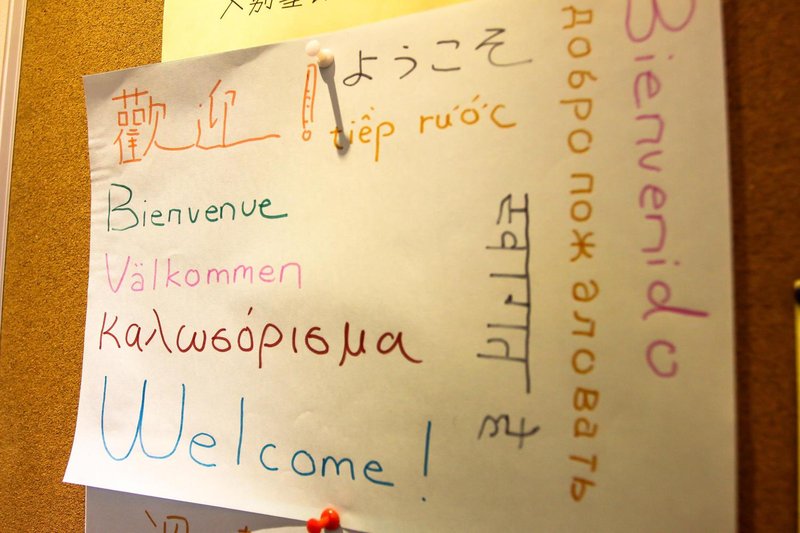 歡迎!
ようこそ
tiếp rước
Bienvenue
Välkommen
καλωσόρισμα
Welcome!
добро пожаловать
Bienvenido
迎